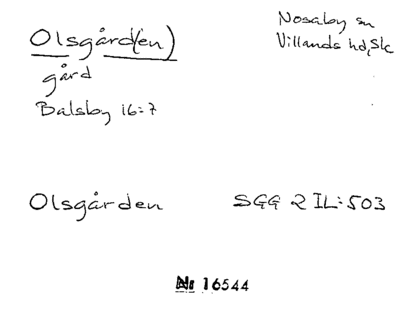 Olsgård(en)
gård
Balsby 16:7
Nosaby sn
Villands hd, Sk
Olsgården SGG 2 IL:503
Nr 16544